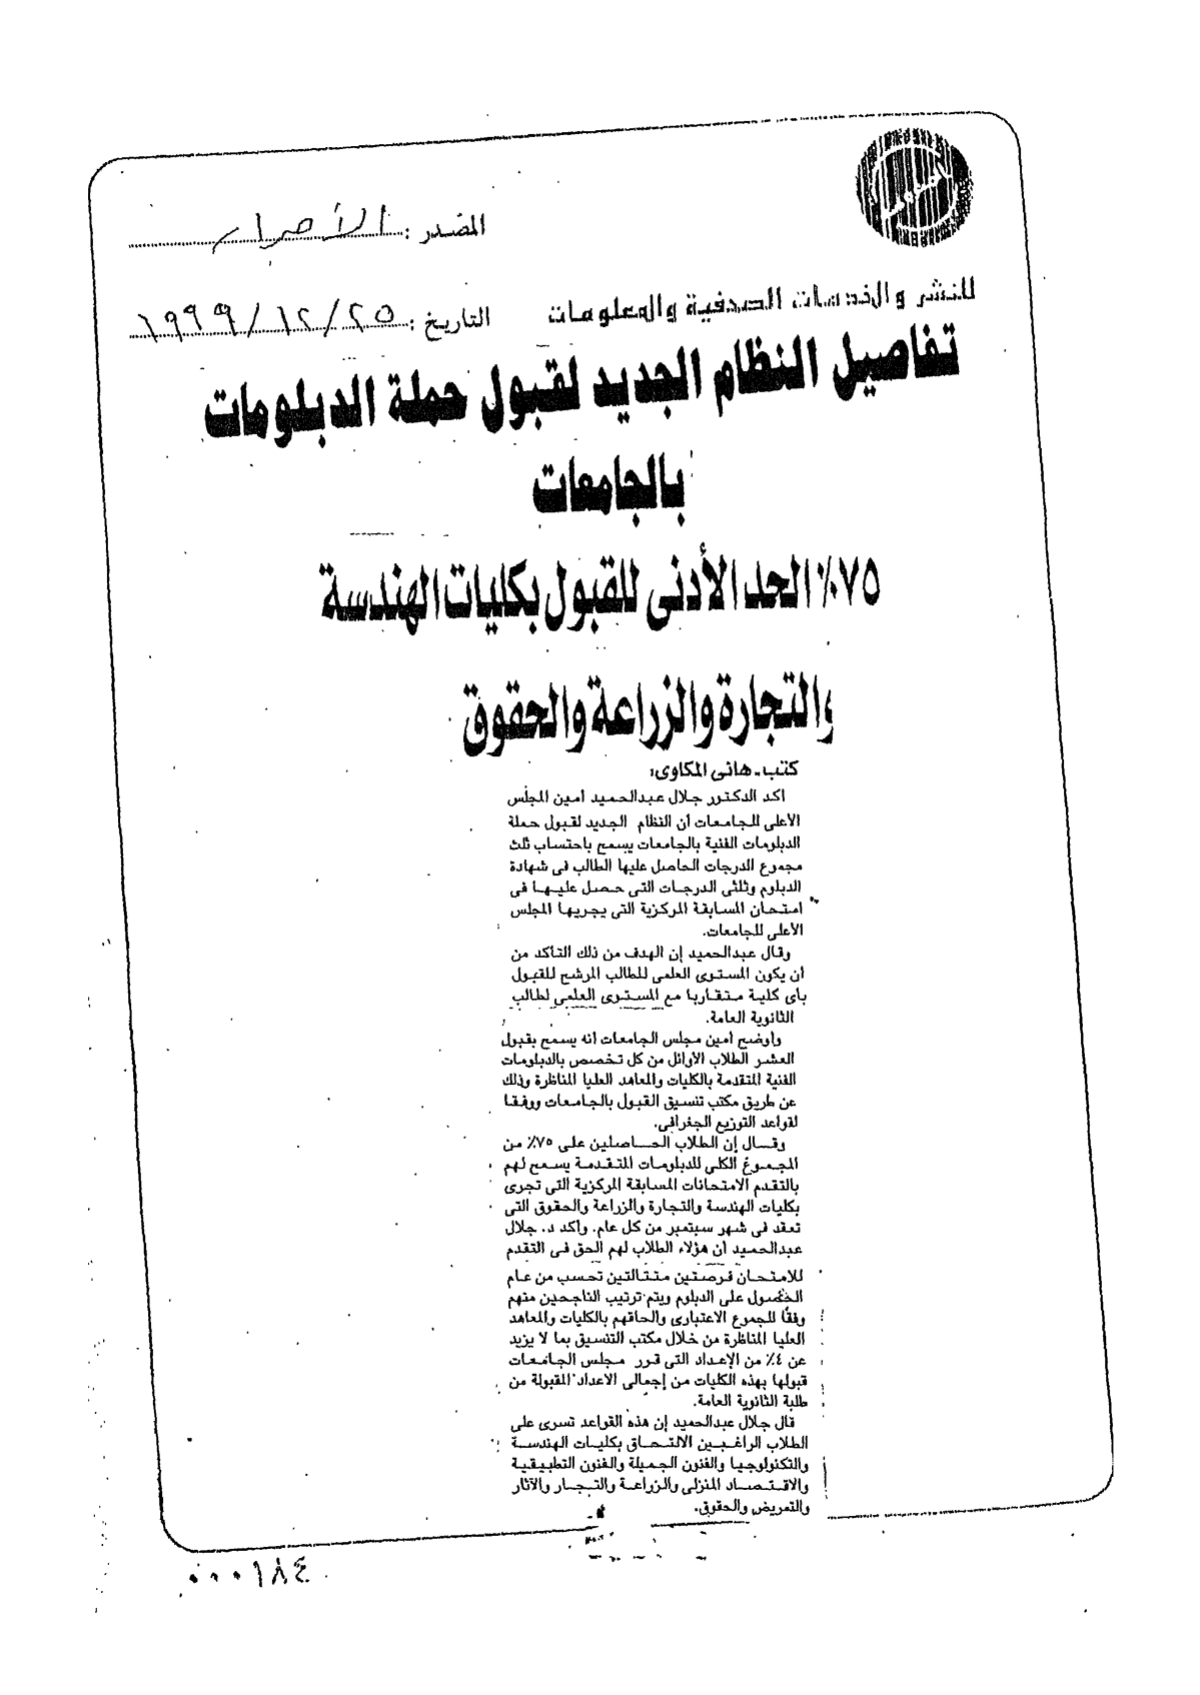 المصدر : الأحرار
للنشر والخدمات الصحفية والمعلومات
التاريخ : ٢٥/١٢/١٩٩٩
تفاصيل النظام الجديد لقبول حملة الدبلومات
بالجامعات
٧٥٪ الحد الأدنى للقبول بكليات الهندسة
والتجارة والزراعة والحقوق
كتب - هانى المكاوى:
أكد الدكتور جلال عبدالحميد أمين المجلس
الأعلى للجامعات أن النظام الجديد لقبول حملة
الدبلومات الفنية بالجامعات يسمح باحتساب ثلث
مجموع الدرجات الحاصل عليها الطالب فى شهادة
الدبلوم وثلثى الدرجات التى حصل عليها فى
امتحان المسابقة المركزية التى يجريها المجلس
الأعلى للجامعات.
وقال عبدالحميد إن الهدف من ذلك التأكد من
أن يكون المستوى العلمى للطالب المرشح للقبول
بأى كلية متقاربا مع المستوى العلمى لطالب
الثانوية العامة.
وأوضح أمين مجلس الجامعات أنه يسمح بقبول
العشر الطلاب الأوائل من كل تخصص بالدبلومات
الفنية المتقدمة بالكليات والمعاهد العليا المناظرة وذلك
عن طريق مكتب تنسيق القبول بالجامعات ووفقا
لقواعد التوزيع الجغرافى.
وقال إن الطلاب الحاصلين على ٧٥٪ من
المجموع الكلى للدبلومات المتقدمة يسمح لهم
بالتقدم الامتحانات المسابقة المركزية التى تجرى
بكليات الهندسة والتجارة والزراعة والحقوق التى
تعقد فى شهر سبتمبر من كل عام. وأكد د. جلال
عبدالحميد أن هؤلاء الطلاب لهم الحق فى التقدم
للامتحان فرصتين متتالتين تحسب من عام
الحصول على الدبلوم ويتم ترتيب الناجحين منهم
وفقا للجموع الاعتبارى والحاقهم بالكليات والمعاهد
العليا المناظرة من خلال مكتب التنسيق بما لا يزيد
عن ٤٪ من الإعداد التى قرر مجلس الجامعات
قبولها بهذه الكليات من إجمالى الاعداد المقبولة من
طلبة الثانوية العامة.
قال جلال عبدالحميد إن هذه القواعد تسرى على
الطلاب الراغبين الالتحاق بكليات الهندسة
والتكنولوجيا والفنون الجميلة والفنون التطبيقية
والاقتصاد المنزلى والزراعة والتجار والآثار
والتمريض والحقوق.
٠٠٠١٨٤